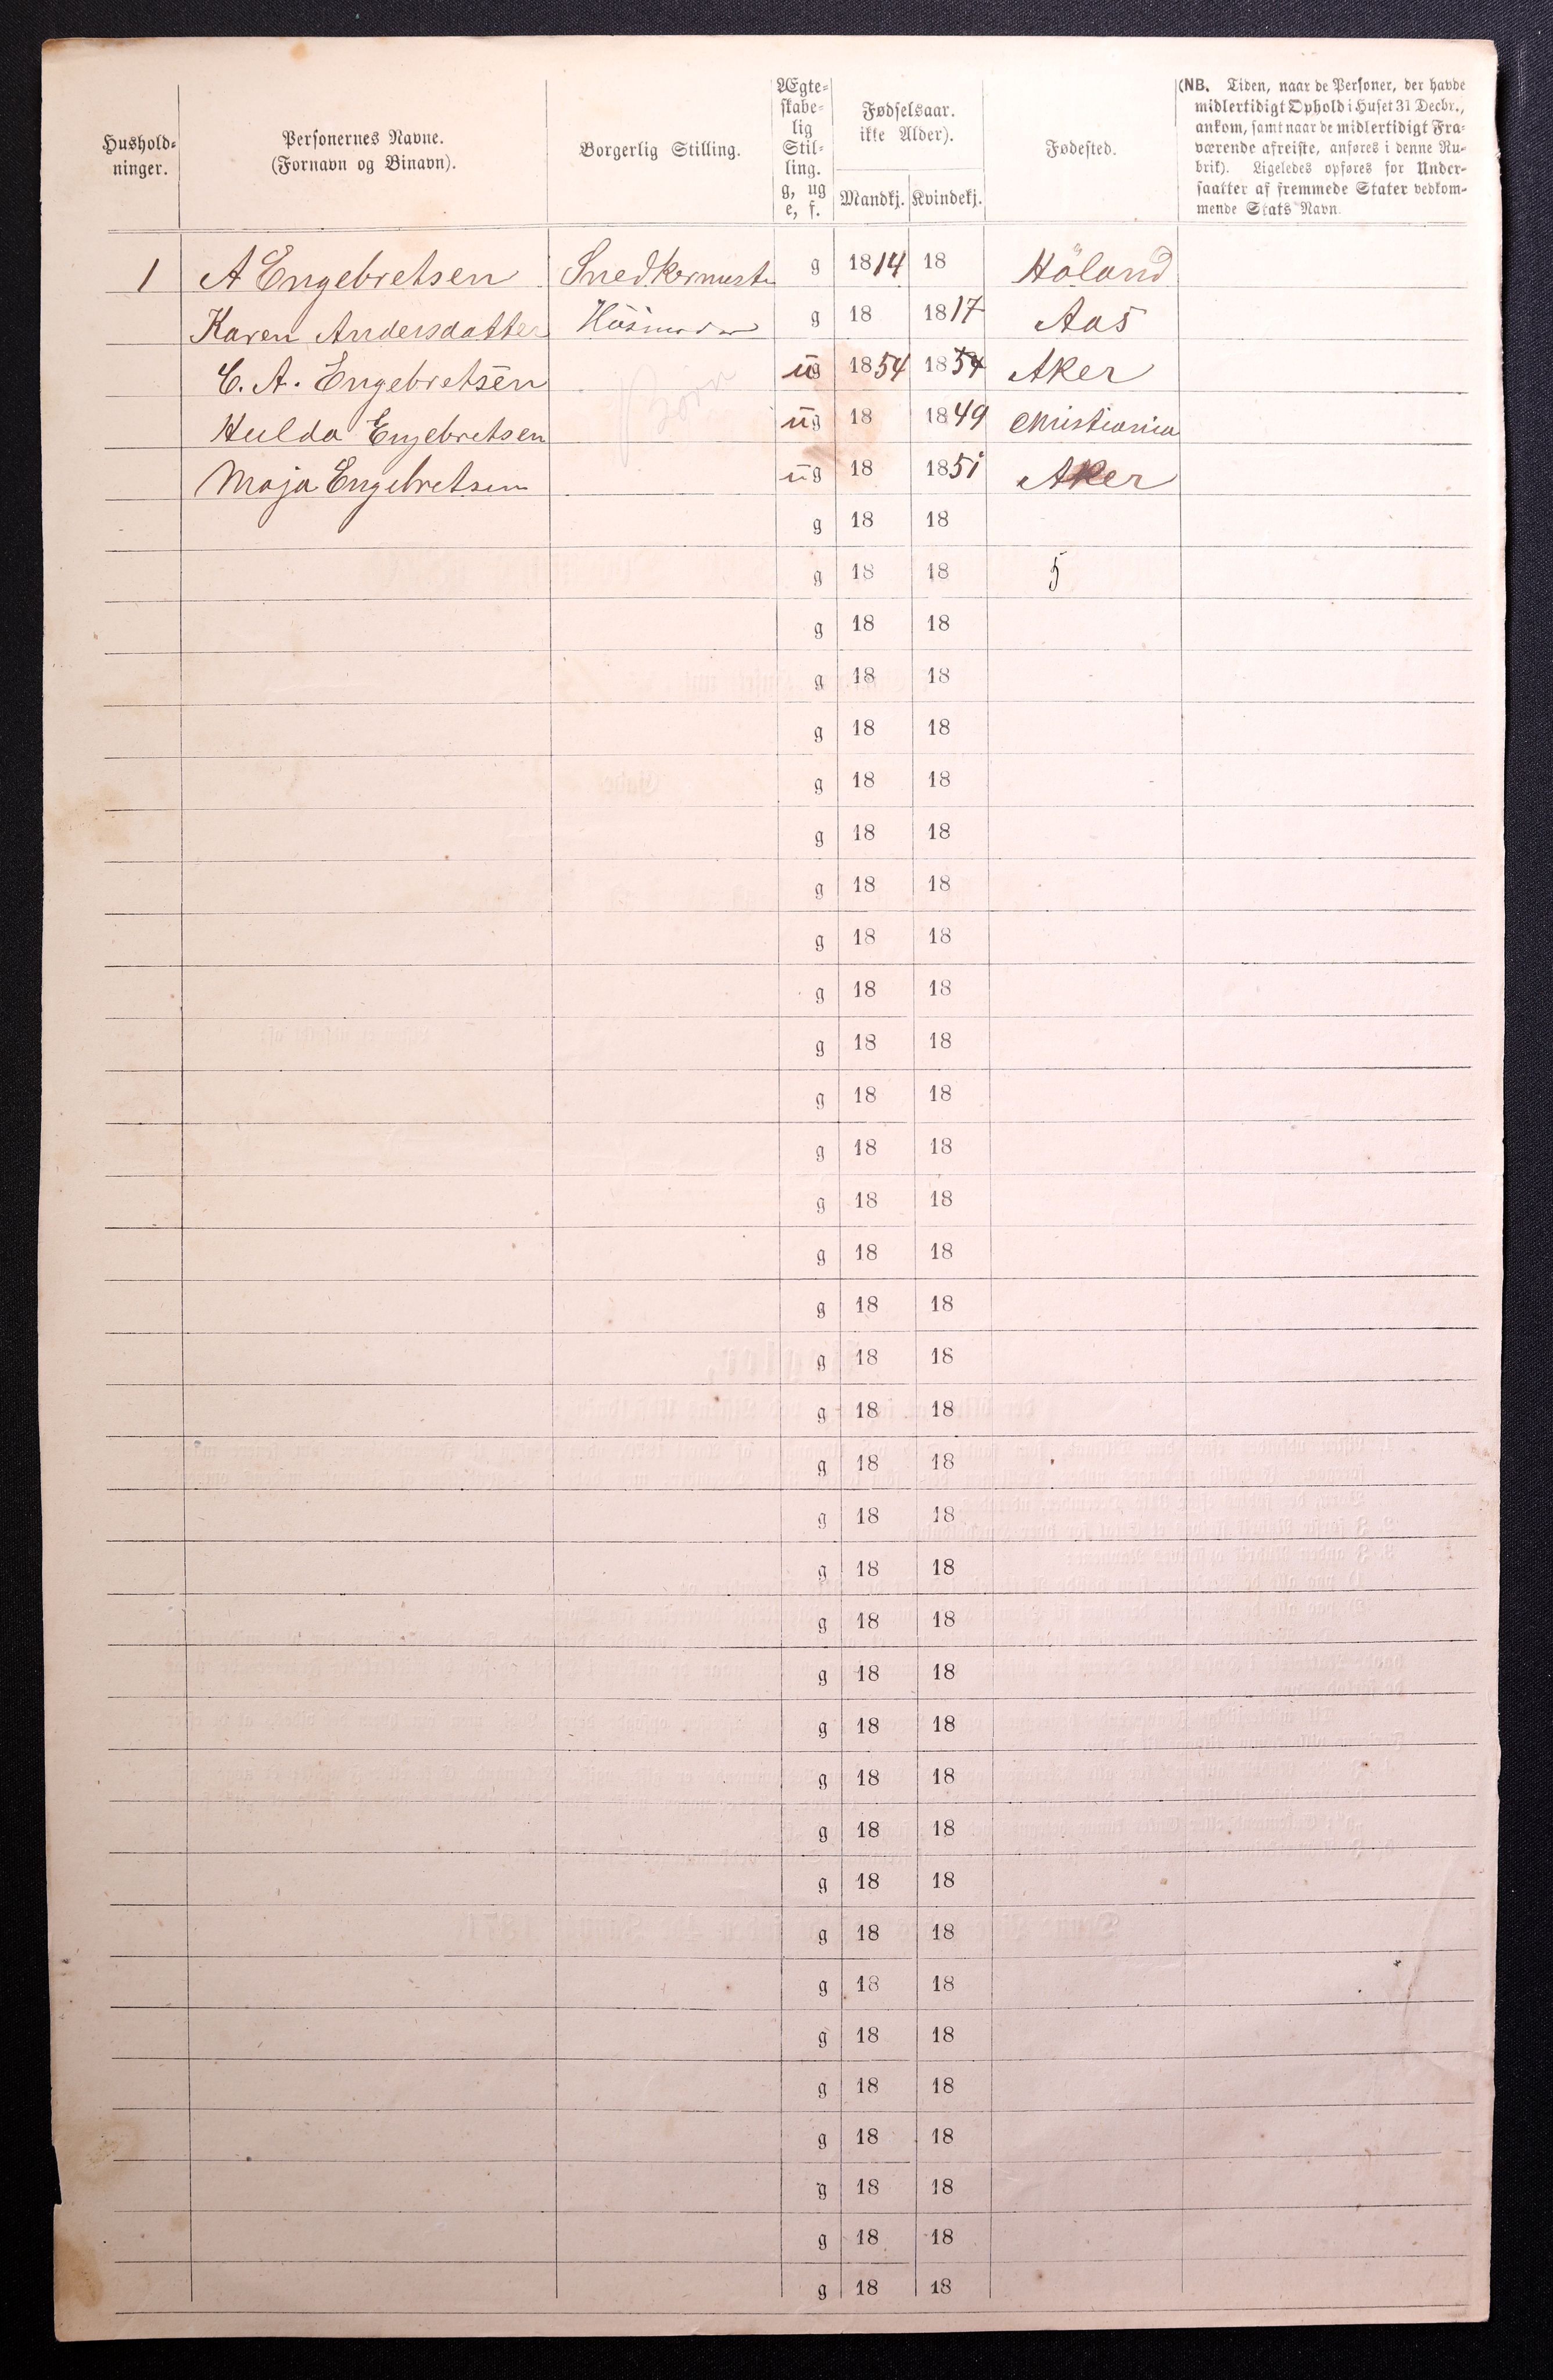 Hushold-
ninger.
Personernes Navne.
(Fornavn og Binavn).
Borgerlig Stilling.
Ægte-
skabe-
lig
Stil-
ling.
g, ug
e, f.
Fødselsaar.
ikke Alder).
Mandkj. Kvindekj.
Fødested.
(NB. Tiden, naar de Personer, der havde
midlertidigt Ophold i Huset 31 Decbr.,
ankom, samt naar de midlertidigt Fra-
værende afreiste, anføres i denne Ru-
brik). Ligeledes opføres for Under-
saatter af fremmede Stater vedkom-
mende Stats Navn.
1 A Engebretsen Snedkermester g 1814 18 Höland
Karen Andersdatter Hüsmoder g 18 1817 Aas
C. A. Engebretsen Børn ug 1854 1854 Aker
Hulda Engebretsen ug 18 1849 Christiania
Maja Engebretsen ug 18 1851 Aker
g 18 18
g 18 18 5
g 18 18
g 18 18
g 18 18
g 18 18
g 18 18
g 18 18
g 18 18
g 18 18
g 18 18
g 18 18
g 18 18
g 18 18
g 18 18
g 18 18
g 18 18
g 18 18
g 18 18
g 18 18
g 18 18
g 18 18
g 18 18
g 18 18
g 18 18
g 18 18
g 18 18
g 18 18
g 18 18
g 18 18
g 18 18
g 18 18
g 18 18
g 18 18
g 18 18